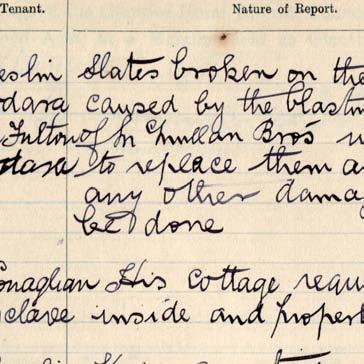 Tenant. Nature of Report.
eslin Slates broken on the
dara caused by the blastin
Fulton of Mc Mullan Bros
dara to replace them a
any other dama
be done
onaghan His cottage requ
clare inside and propert